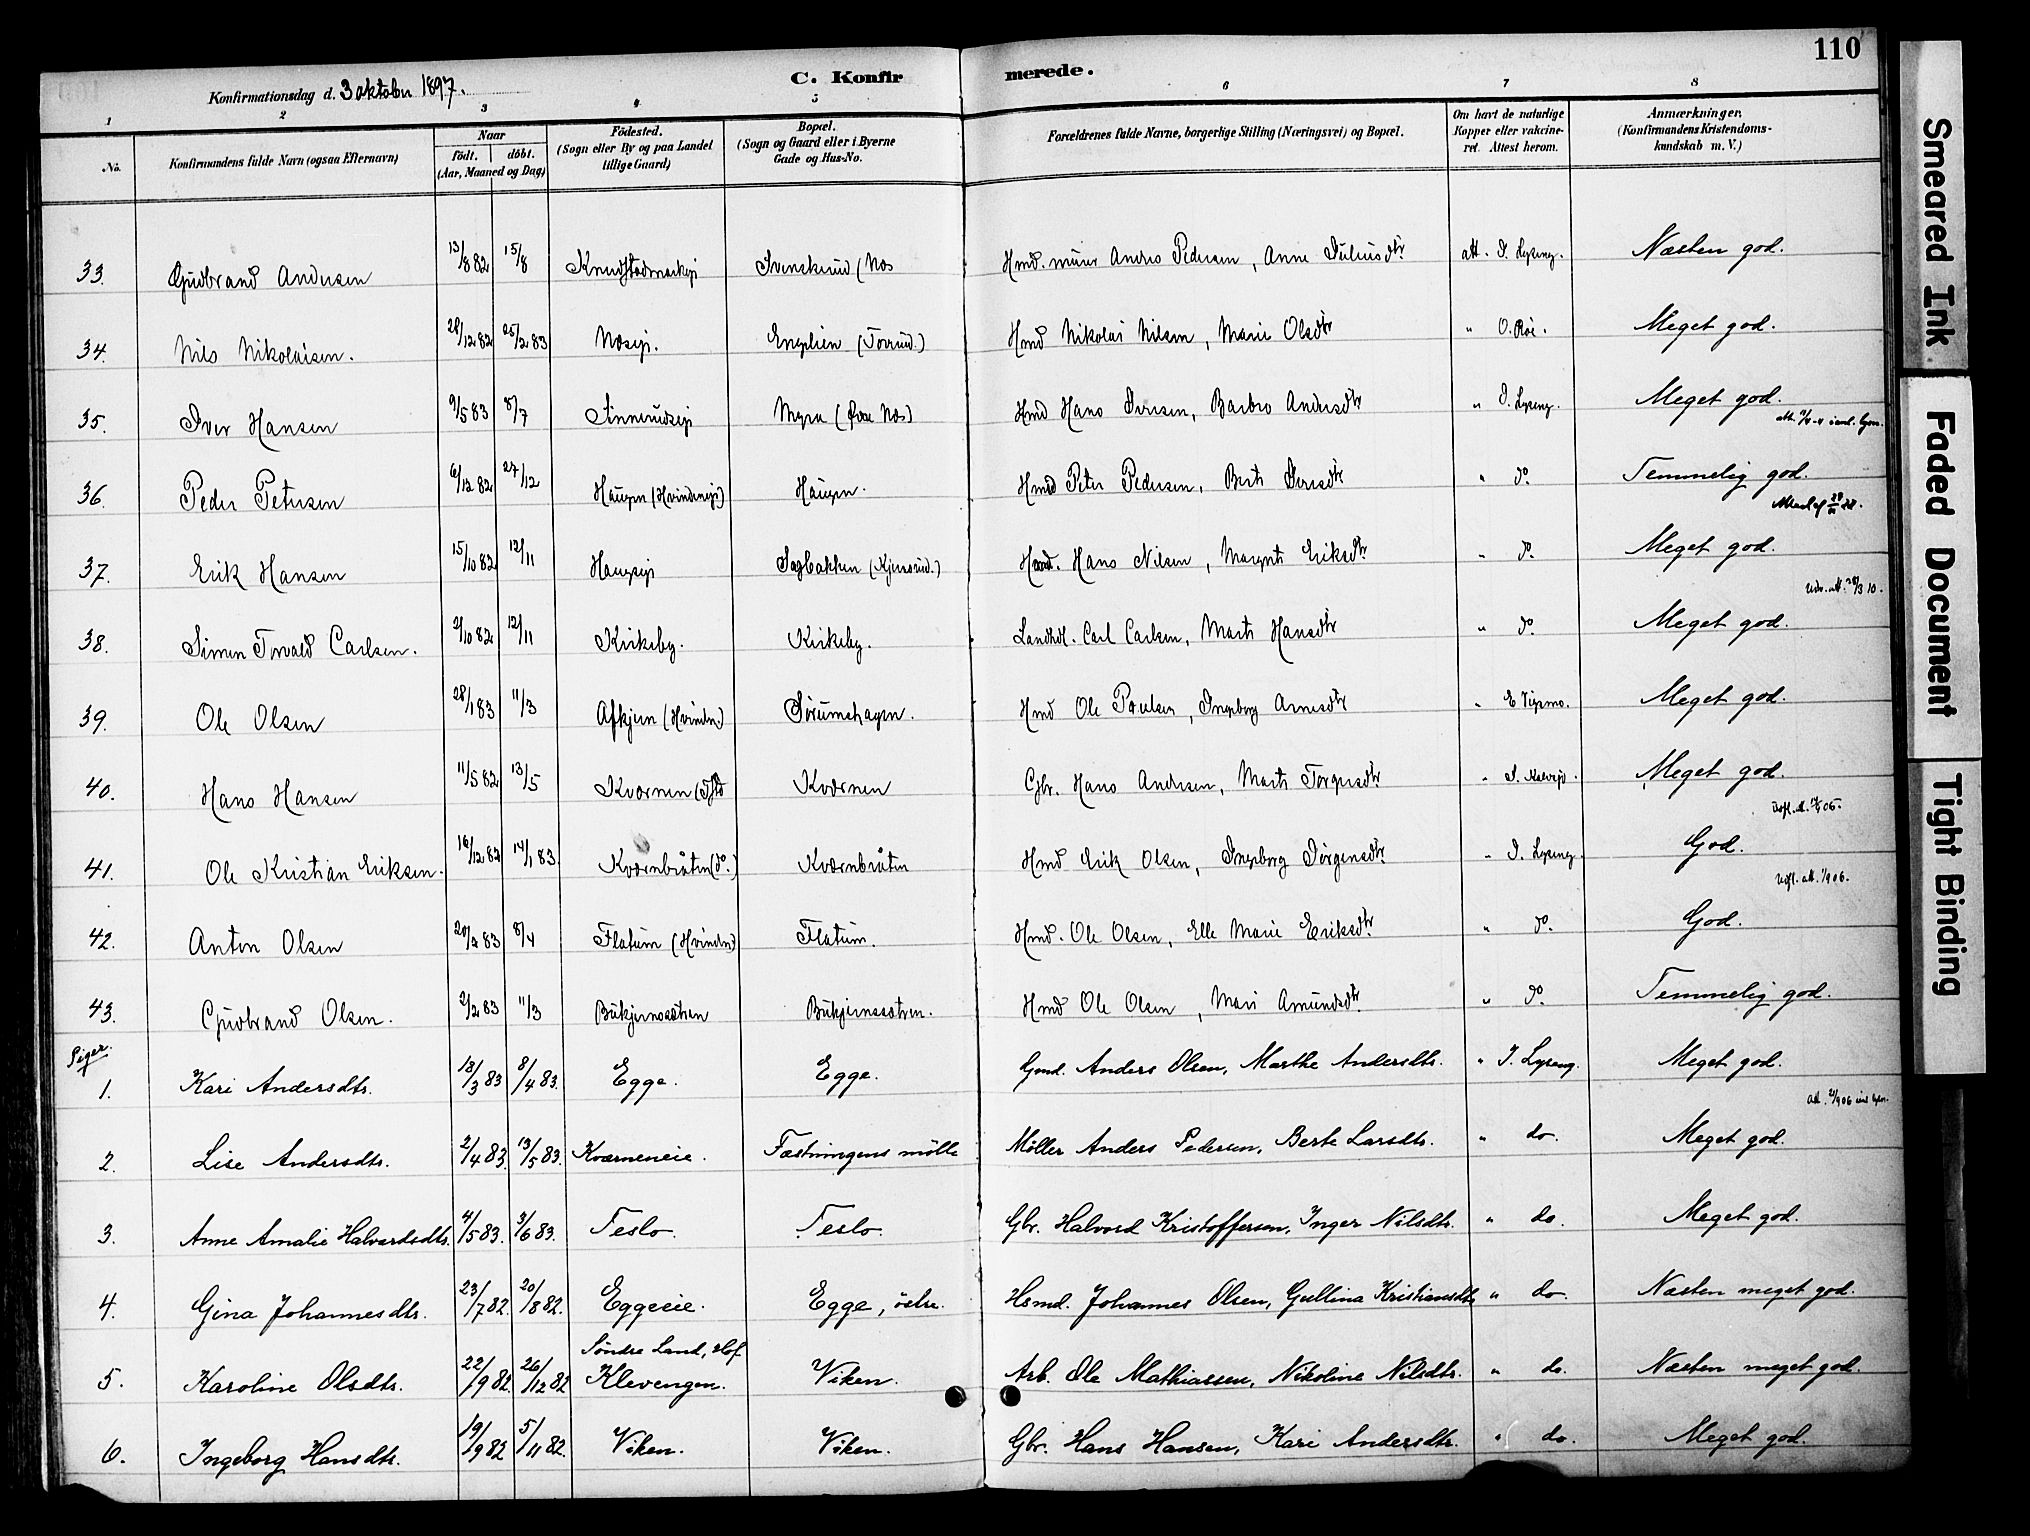 110
Konfirmationsdag d. 3 oktober 1897.
C. Konfirmerede.
1 2 3 4 5 6 7 8
No. Konfirmandens fulde Navn (ogsaa Efternavn) Naar födt. döbt. (Aar, Maaned og Dag) Födested. (Sogn eller By og paa Landet tillige Gaard) Bopæl. (Sogn og Gaard eller i Byerne Gade og Hus-No. Forældrenes fulde Navne, borgerlige Stilling (Næringsvei) og Bopæl. Om havt de naturlige Kopper eller vakcineret. Attest herom. Anmærkninger. (Konfirmandens Kristendomskundskab m. V.)
33. Gudbrand Andersen 13/8 82 15/8 Knudstadmarkej Svenskerud (Næs Hmd. murer Andres Pedersen, Anne Juliusdtr att. I. Lyseng. Næsten god.
34. Nils Nikolaisen. 28/12 82 25/2 83 Næsej. Englien (Torrud.) Hmd Nikolai Nilsen, Marie Olsdtr " O. Röe. Meget god.
35. Iver Hansen 9/5 83 8/7 Sinnerudsej Myra (Øvre Næs) Hmd Hans Iversen, Barbro Andersdtr " I. Lyseng. Meget god.
36. Peder Petersen 6/12 82 27/12 Haugen (Hvindenej) Haugen. Hmd Peter Pedersen, Berte Iversdtr " do Temmelig god.
37. Erik Hansen 15/10 82 12/11 Haugsej Sagbakken (Kjensrud.) Hmd. Hans Nilsen, Margrete Eriksdtr " do Meget god.
Udv. att. 29/3 10.
38. Simen Torvald Carlsen. 2/10 82 12/11 Kirkeby. Kirkeby. Landhdl. Carl Carlsen, Marte Hansdtr " do Meget god.
39. Ole Olsen 28/1 83 11/3 Afkjern (Hvinden) Sörumshagen. Hmd Ole Paulsen, Ingeborg Arnesdtr " E Vigsmo. Meget god.
40. Hans Hansen 11/5 82 13/5 Kværnen Kværnen Gbr. Hans Andersen, Marte Torgersdtr " Meget god.
41. Ole Kristian Eriksen. 16/12 82 14/1 83 Kværnbråten (do.) Kværnbråten Hmd Erik Olsen, Ingeborg Jörgensdtr " I. Lyseng. God.
Udfl. att. 1/9 06.
42. Anton Olsen 20/2 83 8/4 Flatum (Hvinden) Flatum. Hmd. Ole Olsen, Elle Marie Eriksdtr " do. God.
43. Gudbrand Olsen. 2/2 83 11/3 Bukjernssætren Bukjernssætren. Hmd Ole Olsen, Mari Amundsdtr " do Temmelig god.
Piger.
1. Kari Andersdtr. 18/3 83 8/4 83. Egge. Egge. Gmd. Anders Olsen, Marthe Andersdtr. " I. Lyseng. Meget god.
2. Lise Andersdtr. 2/4 83. 13/5 83. Kværneneie. Fæstningens mölle Møller Anders Pedersen, Berte Larsdtr. " do. Meget god.
3. Anne Amalie Halvordsdtr. 4/5 83. 3/6 83. Teslo. Teslo. Gbr. Halvord Kristoffersen, Inger Nilsdtr. " do. Meget god.
4. Gina Johannesdtr. 23/7 82. 20/8 82. Eggeeie. Egge, övre. Hsmd. Johannes Olsen, Gullina Kristiansdtr " do. Næsten meget god.
5. Karoline Olsdtr. 22/9 82. 26/12 82 Söndre Land, Hof Klevengen. Viken. Arb. Ole Mathiassen, Nikoline Nilsdtr. " do. Næsten meget god.
6. Ingeborg Hansdtr. 19/9 82 5/11 82. Viken. Viken. Gbr. Hans Hansen, Kari Andersdtr. " do. Meget god.
Smeared Ink
Faded Document
Tight Binding